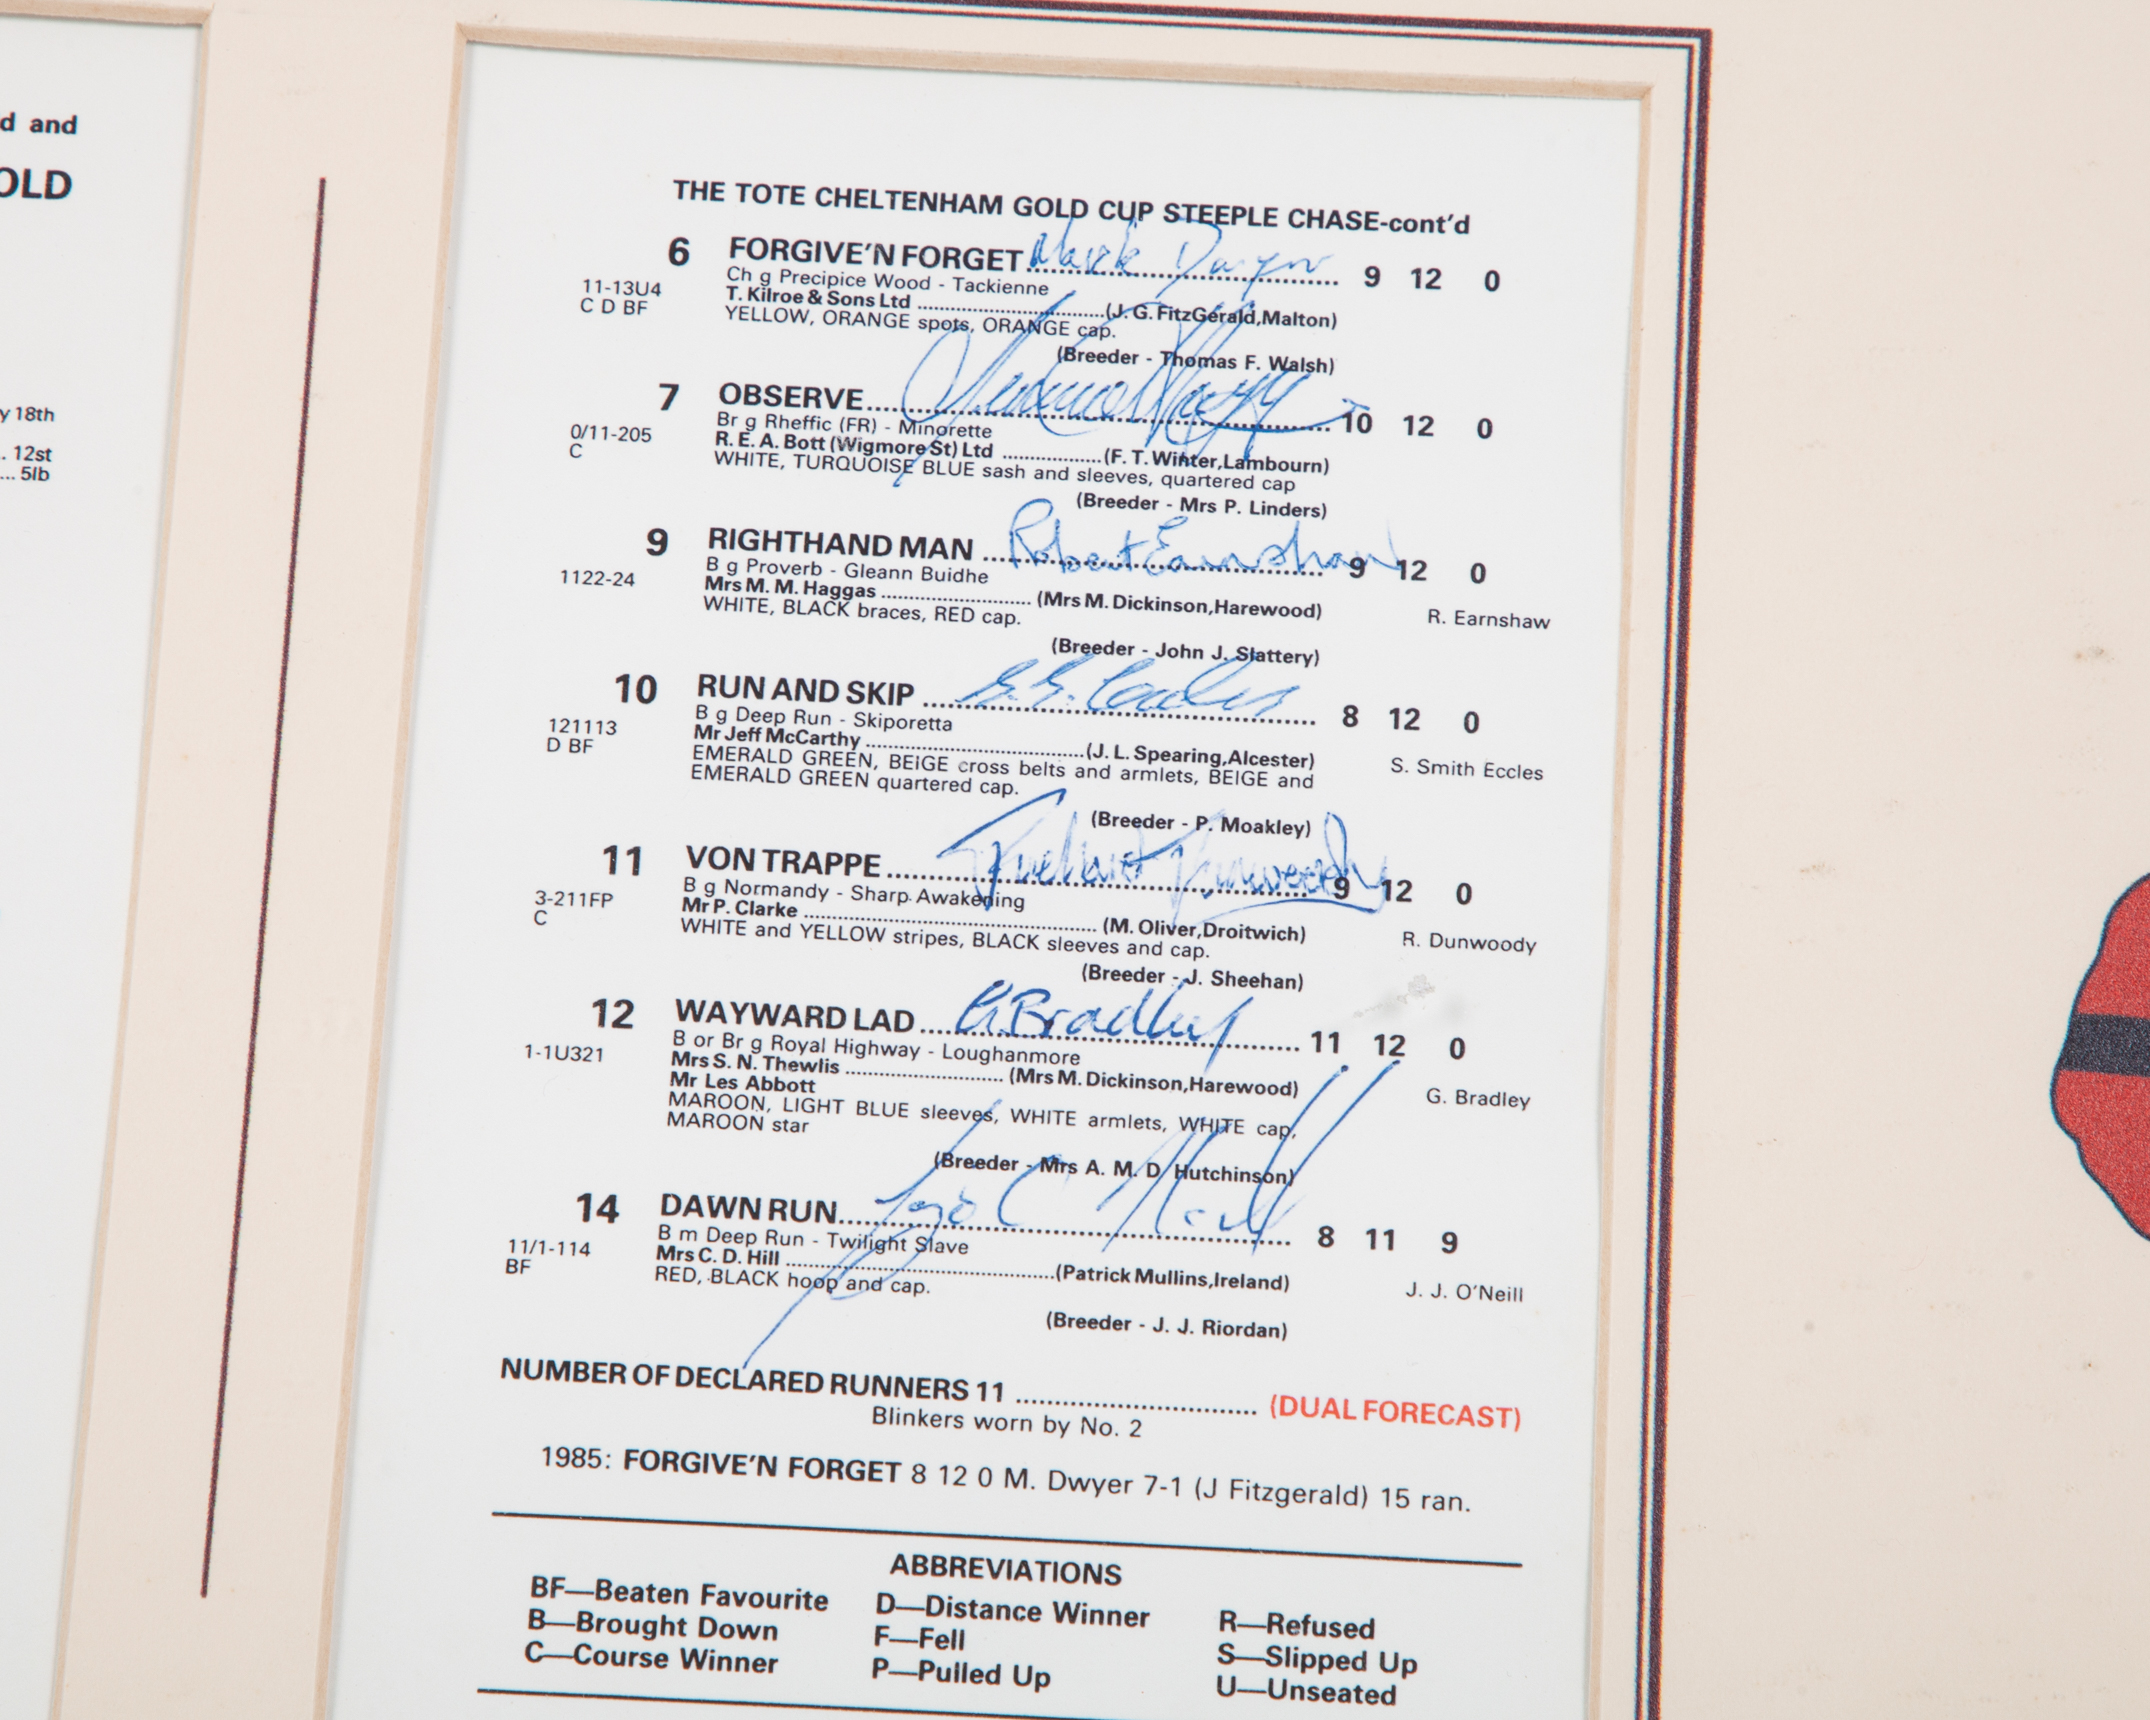 d and
OLD
y 18th
.. 12st
... 5lb
THE TOTE CHELTENHAM GOLD CUP STEEPLE CHASE-cont'd
6 FORGIVE'N FORGET Mark Dwyer 9 12 0
Ch g Precipice Wood - Tackienne
11-13U4
T. Kilroe & Sons Ltd (J. G. FitzGerald, Malton)
C D BF
YELLOW, ORANGE spots, ORANGE cap.
(Breeder - Thomas F. Walsh)
7 OBSERVE 10 12 0
Br g Rheffic (FR) - Minorette
0/11-205
R. E. A. Bott (Wigmore St) Ltd (F. T. Winter, Lambourn)
C
WHITE, TURQUOISE BLUE sash and sleeves, quartered cap
(Breeder - Mrs P. Linders)
9 RIGHTHAND MAN Robert Earnshaw 9 12 0
B g Proverb - Gleann Buidhe
1122-24
Mrs M. M. Haggas (Mrs M. Dickinson, Harewood)
R. Earnshaw
WHITE, BLACK braces, RED cap.
(Breeder - John J. Slattery)
10 RUN AND SKIP 8 12 0
B g Deep Run - Skiporetta
121113
Mr Jeff McCarthy (J. L. Spearing, Alcester)
S. Smith Eccles
D BF
EMERALD GREEN, BEIGE cross belts and armlets, BEIGE and
EMERALD GREEN quartered cap.
(Breeder - P. Moakley)
11 VON TRAPPE Richard Dunwoody 9 12 0
B g Normandy - Sharp Awakening
3-211FP
Mr P. Clarke (M. Oliver, Droitwich)
R. Dunwoody
C
WHITE and YELLOW stripes, BLACK sleeves and cap.
(Breeder - J. Sheehan)
12 WAYWARD LAD G. Bradley 11 12 0
B or Br g Royal Highway - Loughanmore
1-1U321
Mrs S. N. Thewlis (Mrs M. Dickinson, Harewood)
Mr Les Abbott
G. Bradley
MAROON, LIGHT BLUE sleeves, WHITE armlets, WHITE cap,
MAROON star
(Breeder - Mrs A. M. D. Hutchinson)
14 DAWN RUN Jonjo O'Neill 8 11 9
B m Deep Run - Twilight Slave
11/1-114
Mrs C. D. Hill (Patrick Mullins, Ireland)
J. J. O'Neill
BF
RED, BLACK hoop and cap.
(Breeder - J. J. Riordan)
NUMBER OF DECLARED RUNNERS 11 (DUAL FORECAST)
Blinkers worn by No. 2
1985: FORGIVE'N FORGET 8 12 0 M. Dwyer 7-1 (J Fitzgerald) 15 ran.
ABBREVIATIONS
BF—Beaten Favourite D—Distance Winner R—Refused
B—Brought Down F—Fell S—Slipped Up
C—Course Winner P—Pulled Up U—Unseated